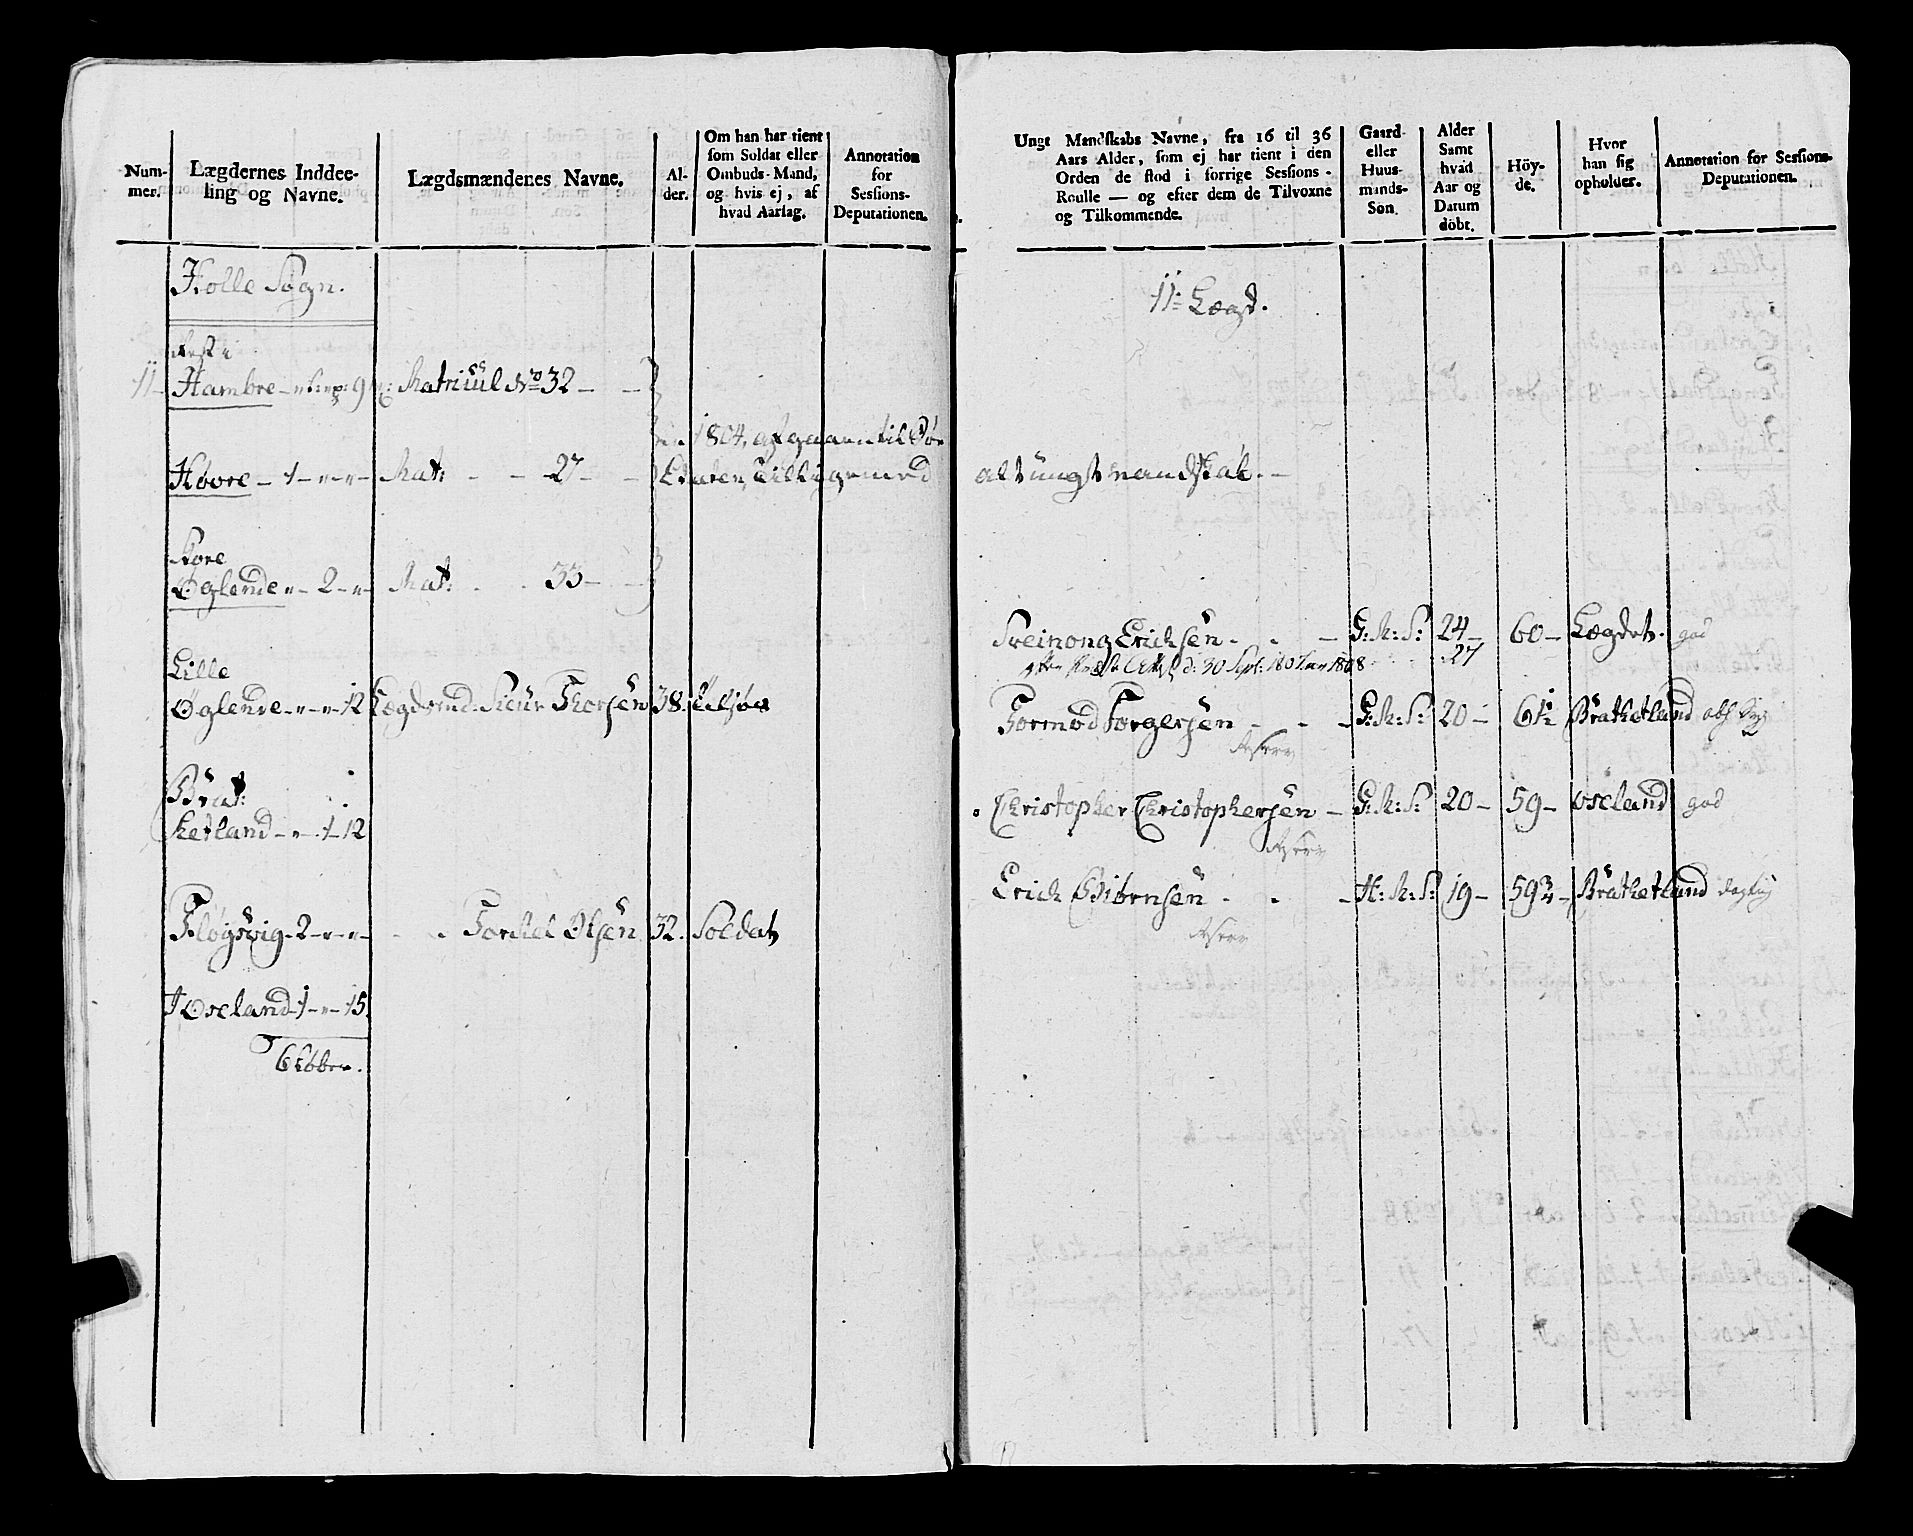 Num-
mer.
Lægdernes Inddee-
ling og Navne.
Lægdsmændenes Navne.
Al-
der.
Om han har tient
som Soldat eller
Ombuds-Mand,
og hvis ej, af
hvad Aarsag.
Annotation
for
Sessions-
Deputationen.
Holle Sogn.
11 Hambre 9 Matricul No 32
Høvre 1 Mat: 27
1804, afgaaen til Søe
Etaten, tilligemed
Store
Øglende 2 Mat: 33
Lille
Øglende 12 Lægdsmd: Siur Thorsen 38. tilsøes
Brat:
hetland 1 12
Fløgsvig 2 Torstel Olsen 32. Soldat
Oseland 1 15
Ungt Mandskabs Navne, fra 16 til 36
Aars Alder, som ej har tient i den
Orden de stod i forrige Sessions-
Roulle — og efter dem de Tilvoxne
og Tilkommende.
Gaard-
eller
Huus-
mands-
Søn.
Alder
Samt
hvad
Aar og
Datum
döbt.
Höy-
de.
Hvor
han sig
opholder.
Annotation for Sessions-
Deputationen.
11: Lægd.
alt ungt mandskab.
Sveinong Erichsen G: M: S: 24 60 Lægdet. god
d: 30 Sept: 1808 27
Tormod Torgersen G: M: S: 20 61½ Brathetland
Christopher Christophersen G: M: S: 20 59 Oseland god
Erich Biørnsen H: M: S: 19 59 Brathetland